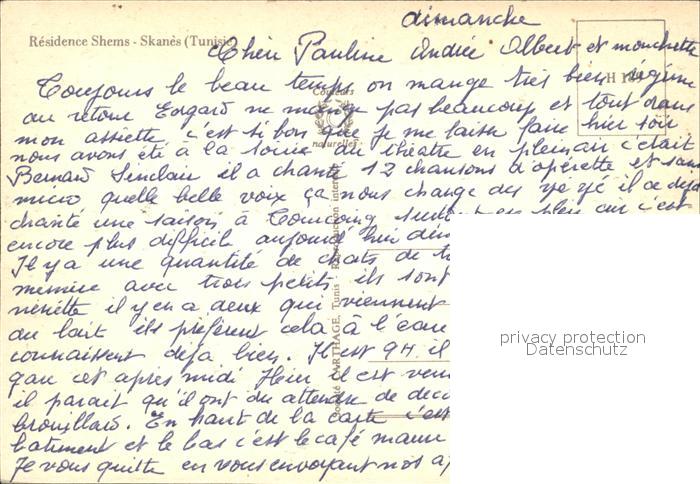 dimanche
Résidence Shems - Skanès (Tunisie)
Chère Pauline Andrée Albert et mouchette
Toujours le beau temps on mange très bien régime
au retour Edgard ne mange pas beaucoup et tout dans
mon assiette c'est si bon que je me laisse faire hier soir
nous avons été à la soirée du théatre en plein air c'était
Bernard Sinclair il a chanté 12 chansons d'opérette et sans
micro quelle belle voix ça nous change des yé yé il a déjà
chanté une saison à Tourcoing surtout en plein air c'est
encore plus difficile aujourd'hui
Il y a une quantité de chats de
avec trois petits ils sont
il y en a deux qui viennent
du lait ils préfèrent cela à l'eau
connaissent déja bien. Il est 9H. il
que cet après midi Hier il est
il parait qu'il ont du attendre de
brouillard. En haut de la carte c'est
batiment et le bas c'est le café maure
Je vous quitte en vous envoyant nos
Couleurs
naturelles
Société CARTHAGE, Tunis - Reproduction interdite
H
privacy protection
Datenschutz